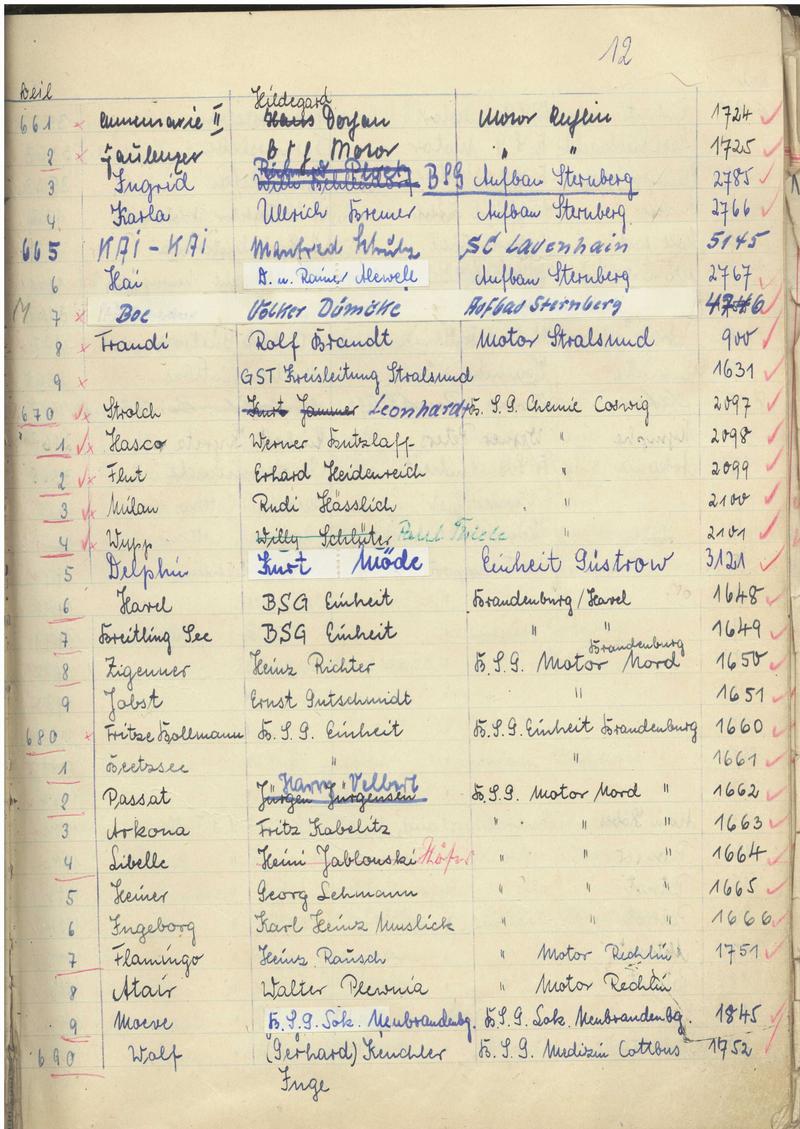 12
Seil
661 x Annemarie II Hildegard Hans Dorjan Motor Rechlin 1724
2 x Faulenzer BSG Motor " " 1725
3 Ingrid BSG Aufbau Sternberg 2785
4 Karla Ullrich Bremer Aufbau Sternberg 2766
665 KAI-KAI Manfred Schulz SC Lavenhain 5145
6 Hai D. u. Rainer Mewell Aufbau Sternberg 2767
M 7 x Boe Volker Dümcke Aufbau Sternberg
8 x Traudi Rolf Brandt Motor Stralsund 900
9 x GST Kreisleitung Stralsund 1631
670 x Strolch Kurt Jammer Leonhardt B.S.G. Chemie Coswig 2097
1 x Hasco Werner Butzlaff " 2098
2 x Flut Erhard Heidenreich " 2099
3 x Milan Rudi Hässlich " 2100
4 x Wupp Willy Schlüter Paul Thiele " 2101
5 Delphin Kurt Möde Einheit Güstrow 3121
6 Havel BSG Einheit Brandenburg/Havel 1648
7 Breitling See BSG Einheit " " 1649
8 Zigenner Heinz Richter B.S.G. Motor Nord Brandenburg 1650
9 Jobst Ernst Gutschmidt " 1651
680 x Fritze Bollmann B.S.G. Einheit B.S.G. Einheit Brandenburg 1660
1 Beetzsee " " 1661
2 Passat Jürgen Jürgensen Harry Velbert B.S.G. Motor Nord " 1662
3 Arkona Fritz Kabelitz " " " 1663
4 Libelle Heini Jablonski " " " 1664
5 Heiner Georg Lehmann " " " 1665
6 Ingeborg Karl Heinz Muslick " " " 1666
7 Flamingo Heinz Rausch " Motor Rechlin 1751
8 Atair Walter Plewnia " Motor Rechlin
9 Moeve B.S.G. Lok. Neubrandenbg. B.S.G. Lok. Neubrandenbg. 1845
690 Wolf (Gerhard) Kenchler B.S.G. Medizin Cottbus 1752
Inge